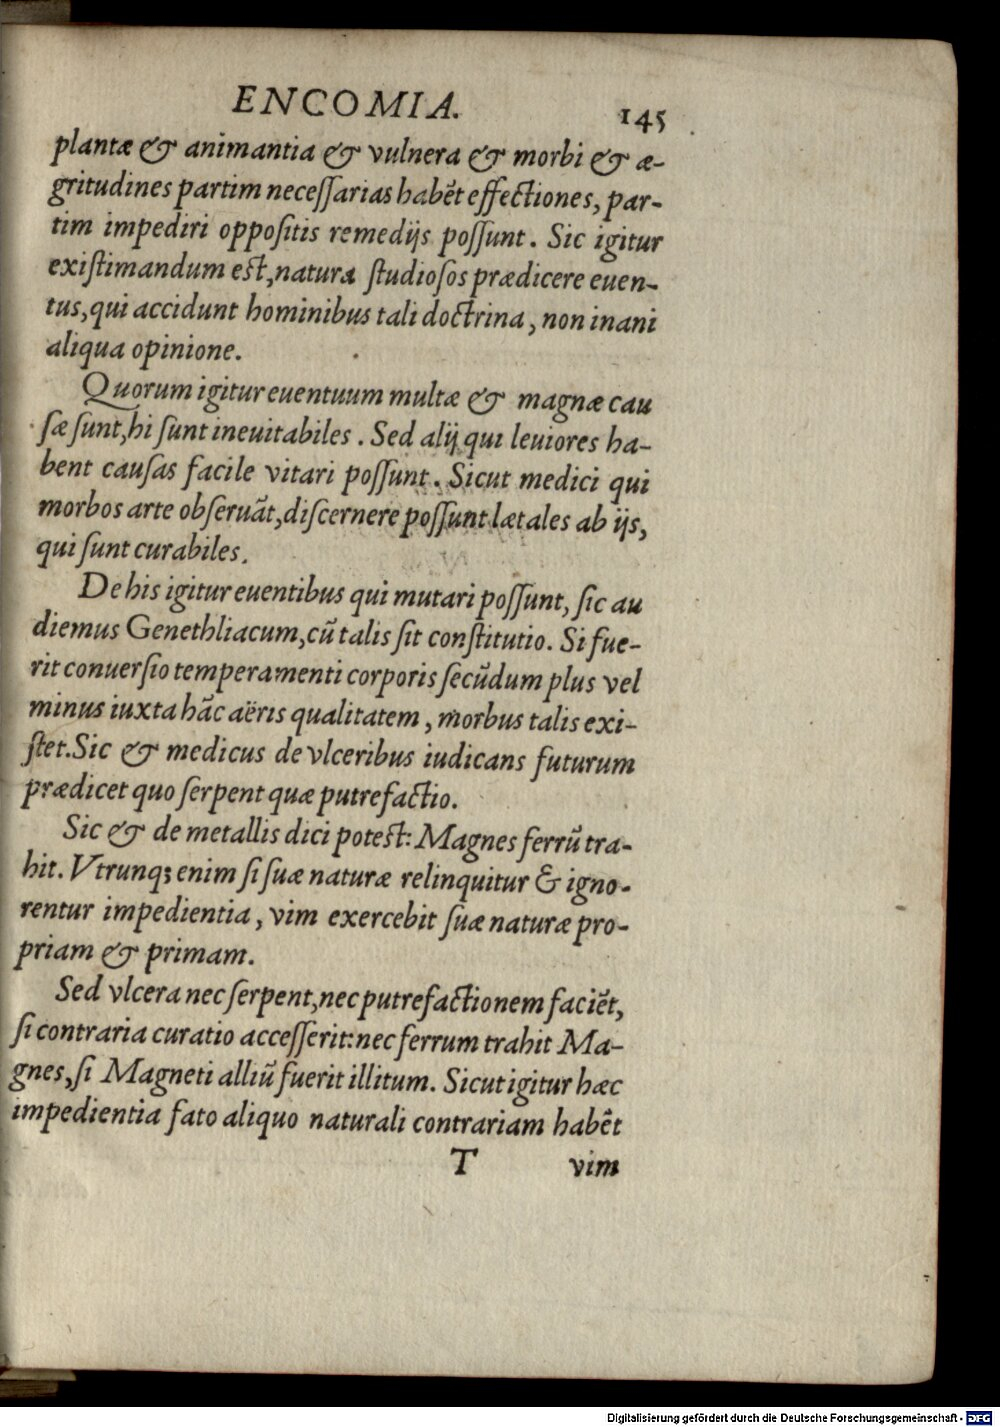 ENCOMIA. 145
plantæ & animantia & vulnera & morbi & æ-
gritudines partim neceſſarias habẽt effectiones, par-
tim impediri oppoſitis remedijs poſſunt. Sic igitur
exiſtimandum est, natura ſtudioſos prædicere euen-
tus, qui accidunt hominibus tali doctrina, non inani
aliqua opinione.
Quorum igitur euentuum multæ & magnæ cau
ſæ ſunt, hi ſunt ineuitabiles. Sed alij qui leuiores ha-
bent cauſas facile vitari poſſunt. Sicut medici qui
morbos arte obſeruãt, diſcernere poſſunt lætales ab ijs,
qui ſunt curabiles.
De his igitur euentibus qui mutari poſſunt, ſic au
diemus Genethliacum, cũ talis ſit conſtitutio. Si fue-
rit conuerſio temperamenti corporis ſecũdum plus vel
minus iuxta hãc aëris qualitatem, morbus talis exi-
ſtet. Sic & medicus de vlceribus iudicans futurum
prædicet quo ſerpent quæ putrefactio.
Sic & de metallis dici potest: Magnes ferrũ tra-
hit. Vtrunq; enim ſi ſuæ naturæ relinquitur & igno-
rentur impedientia, vim exercebit ſuæ naturæ pro-
priam & primam.
Sed vlcera nec ſerpent, nec putrefactionem faciẽt,
ſi contraria curatio acceſſerit: nec ferrum trahit Ma-
gnes, ſi Magneti alliũ fuerit illitum. Sicut igitur hæc
impedientia fato aliquo naturali contrariam habẽt
T vim
Digitalisierung gefördert durch die Deutsche Forschungsgemeinschaft - DFG